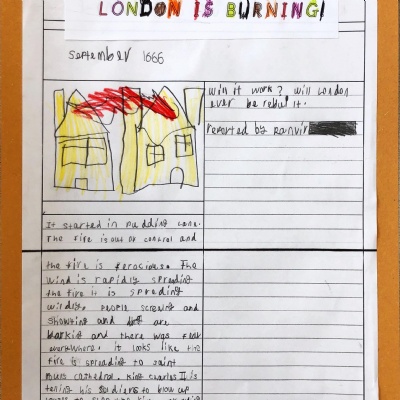 LONDON IS BURNING!
September 1666
Will it work? Will London
ever be rebuilt.
reported by Ranvir
It started in pudding lane.
The fire is out of control and
the fire is ferocious. The
wind is rapidly spreading
the fire it is spreading
wildly. People screing and
showting and are
barking and there was fear
everywhere. it looks like the
fire is spreading to saint
cathedral. King Charles II is
his soldiers to blow up